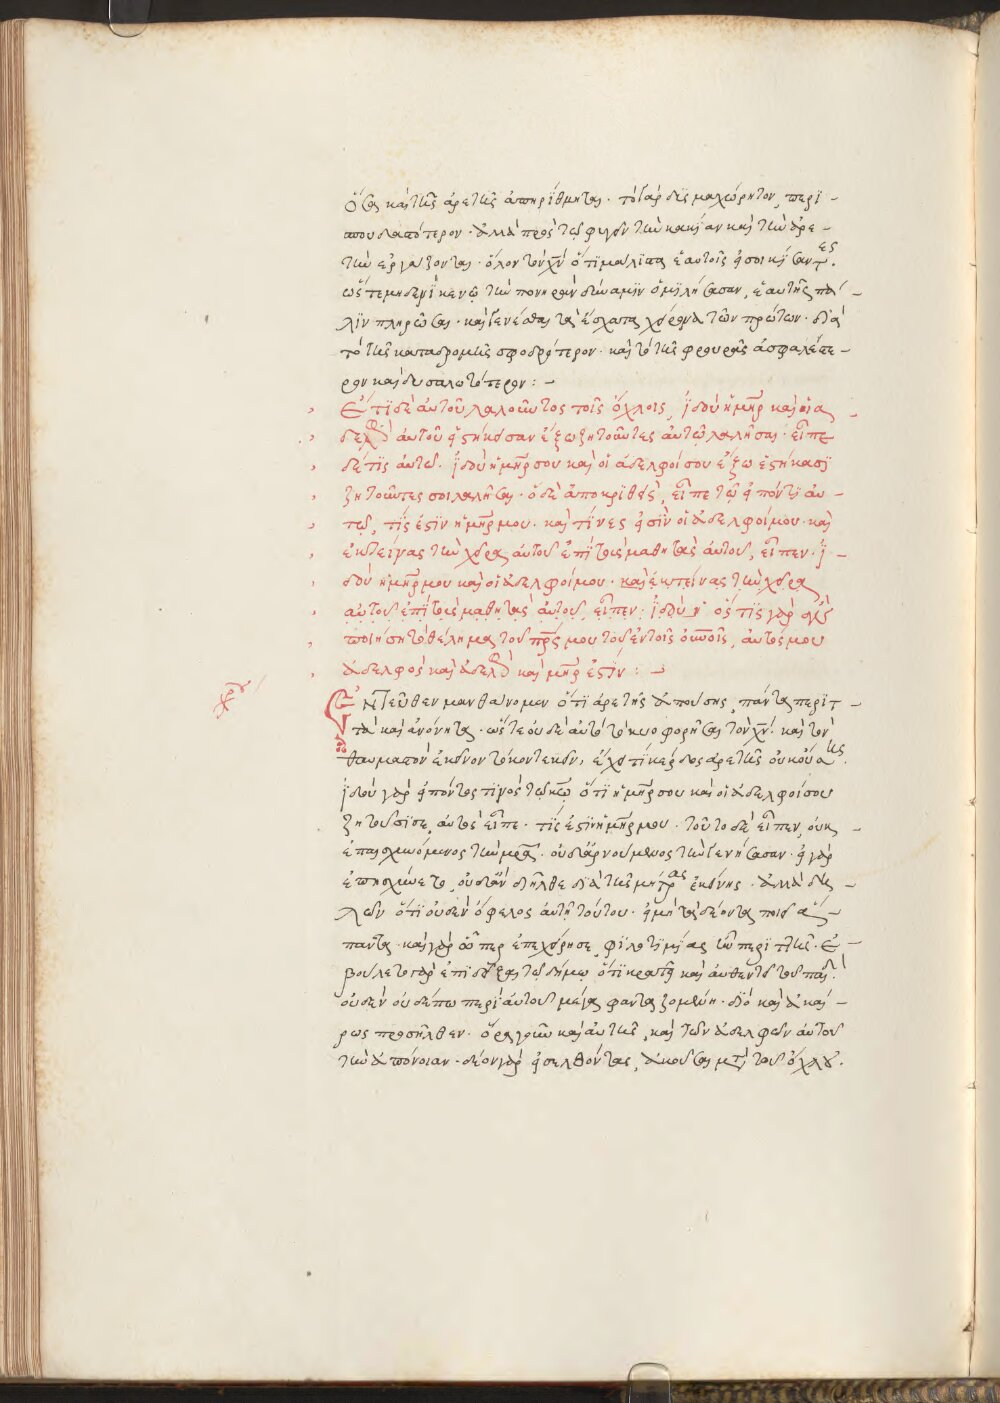 ὅσα καὶ τῆς ἀρετῆς ἀπηρίθμηται· τὸ γὰρ δὶς περι-
σπουδαστότερον· ἀλλὰ πρὸς τῷ φυγεῖν τὴν κακίαν καὶ τὴν ἀρε-
τὴν ἐργάζονται· ὅλον τὸν χν ὅτι μάλιστα ἑαυτοῖς εἰσοικίσαντες.
ὥστε μηδενὶ κενῷ τὴν πονηρὰν δύναμιν ὁμιλήσασαν, ἑαυτῆς πά-
λιν πληρῶσαι· καὶ γενέσθαι τὰ ἔσχατα χείρονα τῶν πρώτων· διὰ
τὸ τῆς καταδρομῆς σφοδρότερον· καὶ τὸ τῆς φρουρᾶς ἀσφαλέστε-
ρον καὶ δυσαλωτότερον: –
Ἔτι δὲ αὐτοῦ λαλοῦντος τοῖς ὄχλοις, ἰδοὺ ἡ μηρ καὶ οἱ ἀ-
δελφοὶ αὐτοῦ εἱστήκεσαν ἔξω ζητοῦντες αὐτῷ λαλῆσαι· εἶπε
δέ τις αὐτῷ· ἰδοὺ ἡ μηρ σου καὶ οἱ ἀδελφοί σου ἔξω ἑστήκασι
ζητοῦντες σοι λαλῆσαι· ὁ δὲ ἀποκριθεὶς, εἶπε τῷ εἰπόντι αὐ-
τῷ, τίς ἐστιν ἡ μηρ μου· καὶ τίνες εἰσὶν οἱ ἀδελφοί μου· καὶ
ἐκτείνας τὴν χεῖρα αὐτοῦ ἐπὶ τοὺς μαθητὰς αὐτοῦ, εἶπεν· ἰ-
δοὺ ἡ μηρ μου καὶ οἱ ἀδελφοί μου· καὶ ἐκτείνας τὴν χεῖρα
αὐτοῦ ἐπὶ τοὺς μαθητὰς αὐτοῦ, εἶπεν· ἰδοὺ ἡ ὅς τις γὰρ
ποιήσῃ τὸ θέλημα τοῦ πρς μου τοῦ ἐν τοῖς οὐνοῖς, αὐτός μου
ἀδελφὸς καὶ ἀδελφὴ καὶ μηρ ἐστίν: –
Ἐντεῦθεν μανθάνομεν ὅτι ἀρετῆς ἀπούσης, πάντα περιτ-
τὰ καὶ ἀνόνητα· ὥστε οὐδὲ αὐτὸ τὸ κυοφορῆσαι τὸν χν· καὶ τὸν
θαυμαστὸν ἐκεῖνον τόκον τεκεῖν, ἔχει τι κέρδος ἀρετῆς οὐκ οὔσης.
ἰδοὺ γὰρ εἰπόντος τινὸς τῷ κω ὅτι ἡ μηρ σου καὶ οἱ ἀδελφοί σου
ζητοῦσί σε, αὐτὸς εἶπε· τίς ἐστιν ἡ μηρ μου· τοῦτο δὲ εἶπεν, οὐκ
ἐπαισχυνόμενος τὴν μρα· οὐδ' ἀρνούμενος τὴν γεννήσασαν· εἰ γὰρ
ἐπῃσχύνετο, οὐδ' ἂν διῆλθε διὰ τῆς μήτρας ἐκείνης· ἀλλὰ δη-
λῶν ὅτι οὐδὲν ὄφελος αὐτῇ τούτου· εἰ μὴ τὰ δέοντα ποιεῖ ἅ-
παντα· καὶ γὰρ ὅπερ ἐπεχείρησε φιλοτιμίας ἦν περιττῆς· ἐ-
βούλετο γὰρ ἐπιδεῖξαι τῷ δήμῳ ὅτι κρατεῖ καὶ αὐθεντεῖ τοῦ παιδὸς.
οὐδὲν οὐδέπω περὶ αὐτοῦ μέγα φανταζομένη· διὸ καὶ ἀκαί-
ρως προσῆλθεν· ὅρα γοῦν καὶ αὐτῆς, καὶ τῶν ἀδελφῶν αὐτοῦ
τὴν ἀπόνοιαν· δέον γὰρ εἰσελθόντας, ἀκοῦσαι μετὰ τοῦ ὄχλου.